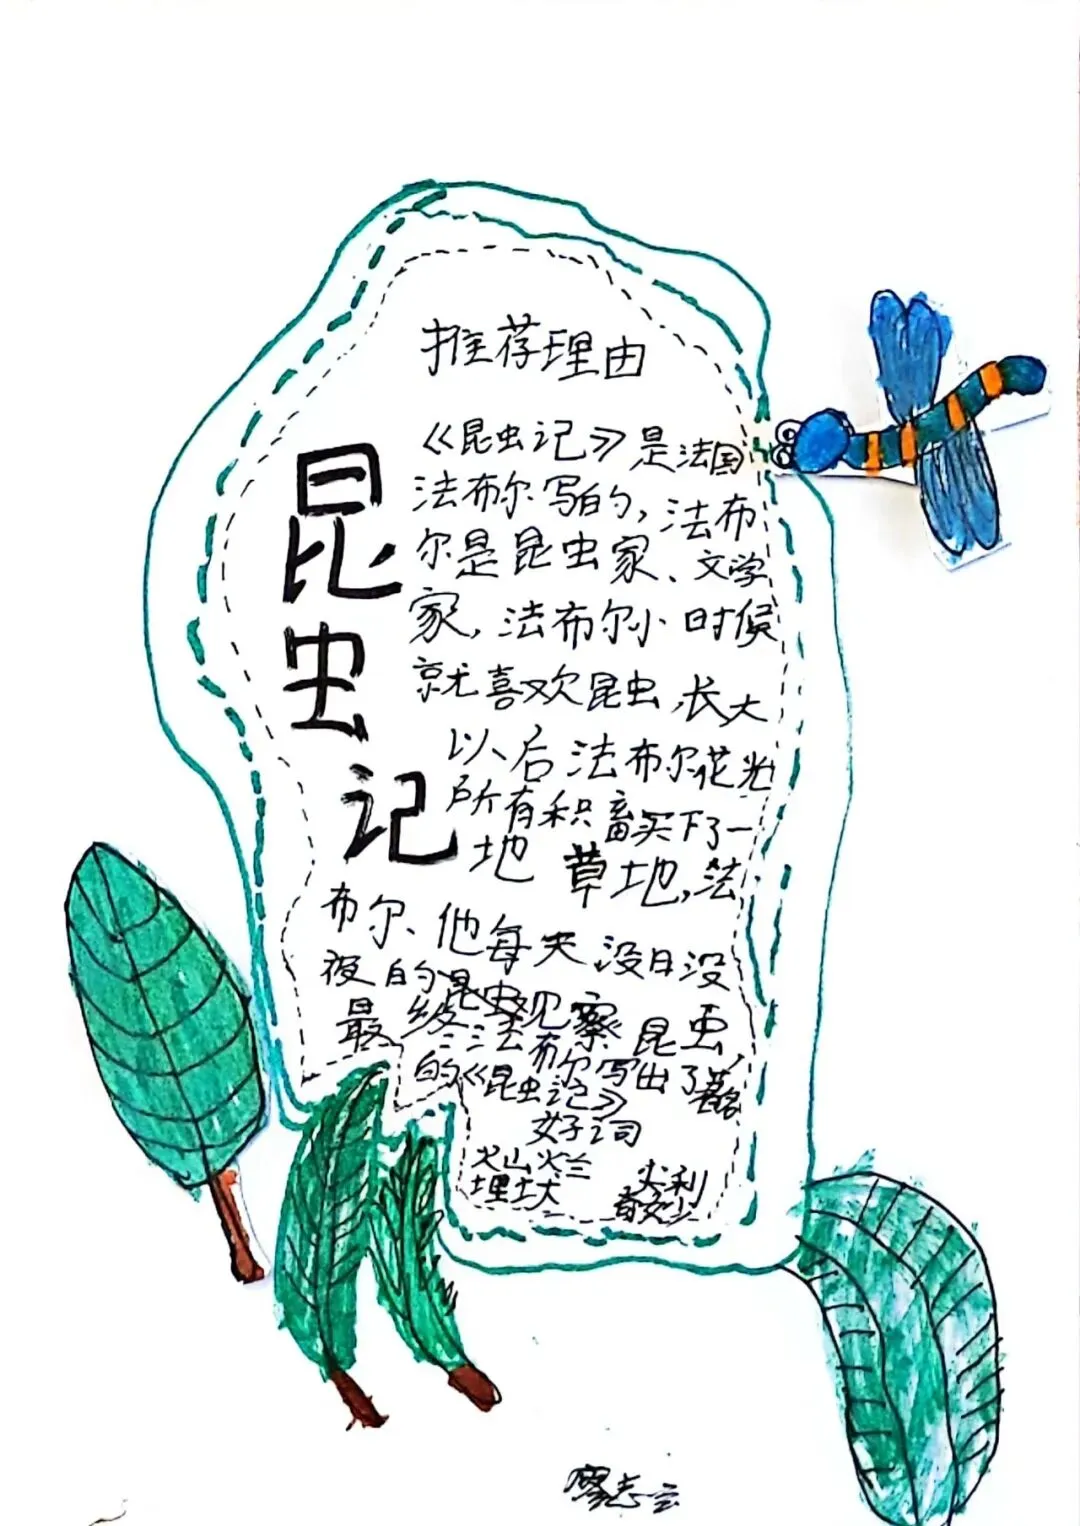 昆虫记
推荐理由
《昆虫记》是法国
法布尔写的,法布
尔是昆虫家、文学
家,法布尔小时候
就喜欢昆虫,长大
以后法布尔花光
所有积畜买下了一
地 草地,法
布尔、他每天没日没
夜的昆虫观察昆虫,
最终法布尔写出了著名
的《昆虫记》
好词
灿烂 尖利
埋坟
廖志云